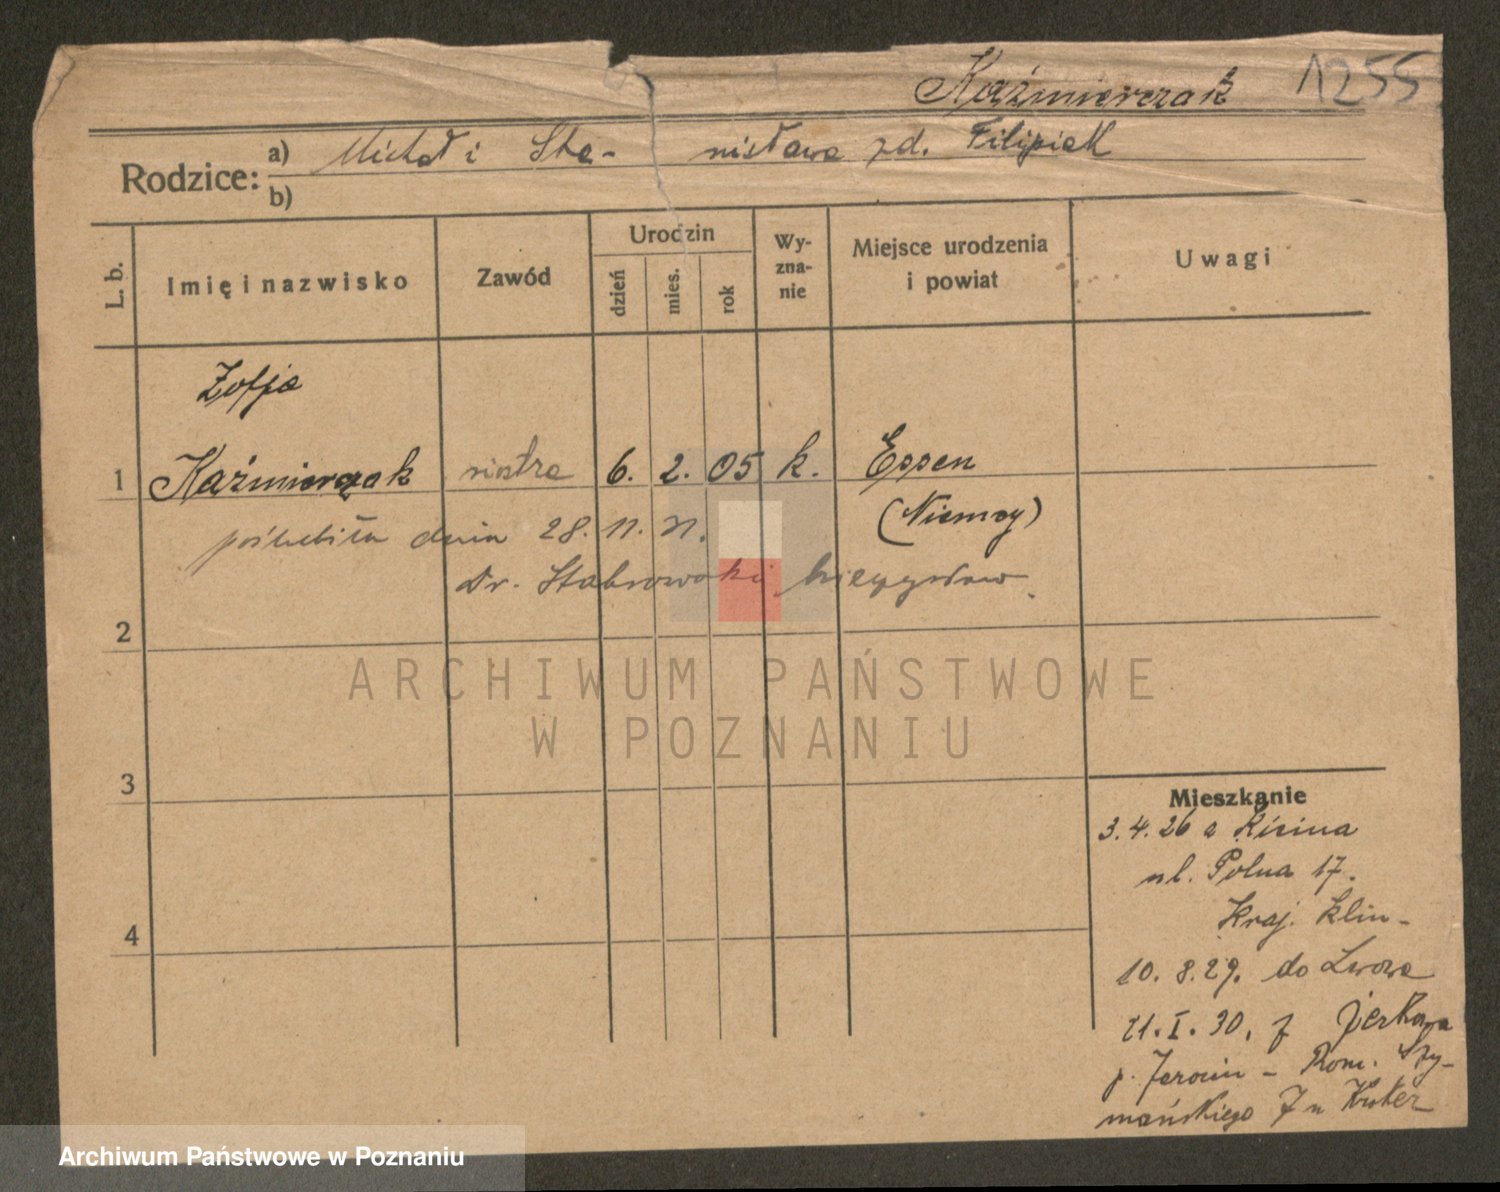 Kaźmierczak 1255
Rodzice: a) Michał i Sta- nisława zd. Filipiak
b)
L. b.
Imię i nazwisko
Zawód
Urodzin
dzień
mies.
rok
Wy-
zna-
nie
Miejsce urodzenia
i powiat
Uwagi
Zofja
1 Kaźmierczak siostra 6. 2. 05 k. Essen
(Niemcy)
poślubiła dnia 28. 11. 31.
Dr. Stabrowski
2
3
4
Mieszkanie
3.4.26 z
ul. Polna 17.
Kraj. klin-
10. 8. 29. do Lwowa
21. I. 30. z
p. Jarocin - Rom. Szy-
mańskiego 7
ARCHIWUM PAŃSTWOWE
W POZNANIU
Archiwum Państwowe w Poznaniu